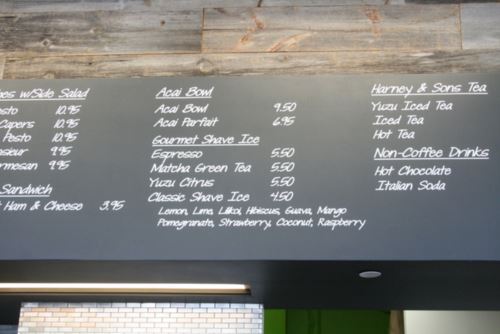 w/Side Salad
10.95
Capers 10.95
Pesto 10.95
9.95
9.95
Sandwich
Ham & Cheese 3.95
Acai Bowl
Acai Bowl 9.50
Acai Parfait 6.95
Gourmet Shave Ice
Espresso 5.50
Matcha Green Tea 5.50
Yuzu Citrus 5.50
Classic Shave Ice 4.50
Lemon, Lime, Lilikoi, Hibiscus, Guava, Mango
Pomegranate, Strawberry, Coconut, Raspberry
Harney & Sons Tea
Yuzu Iced Tea
Iced Tea
Hot Tea
Non-Coffee Drinks
Hot Chocolate
Italian Soda